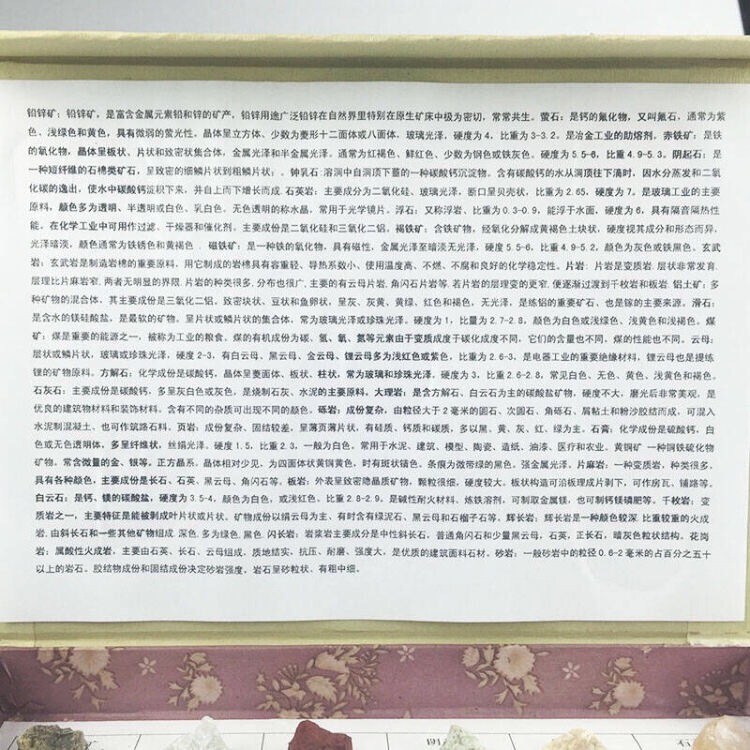 铅锌矿：铅锌矿，是富含金属元素铅和锌的矿产，铅锌用途广泛铅锌在自然界里特别在原生矿床中极为密切，常常共生。萤石：是钙的氟化物，又叫氟石，通常为紫
色、浅绿色和黄色，具有微弱的萤光性，晶体呈立方体、少数为菱形十二面体或八面体，玻璃光泽，硬度为4，比重为3-3.2，是冶金工业的助熔剂，赤铁矿：是铁
的氧化物，晶体呈板状、片状和致密状集合体，金属光泽和半金属光泽。通常为红褐色、鲜红色、少数为钢色或铁灰色。硬度为5.5-6，比重4.9-5.3。阴起石：是
一种短纤维的石棉类矿石，呈致密的细鳞片状到粗鳞片状；。钟乳石：溶洞中自洞顶下垂的一种碳酸钙沉淀物。含有碳酸钙的水从洞顶往下滴时，因水分蒸发和二氧
化碳的逸出，使水中碳酸钙淀积下来，并自上而下增长而成。石英岩：主要成分为二氧化硅、玻璃光泽，断口呈贝壳状，比重为2.65，硬度为7，是玻璃工业的主要
原料，颜色多为透明、半透明或白色、乳白色、无色透明的称水晶，常用于光学镜片。浮石：又称浮岩、比重为0.3-0.9，能浮于水面，硬度为6，具有隔音隔热性
能。在化学工业中可用作过滤、干燥器和催化剂，主要成份是二氧化硅和三氧化二铝。褐铁矿：含铁矿物，经氧化分解成黄褐色土块状，硬度视其成分和形态而异，
光泽暗淡，颜色通常为铁锈色和黄褐色．磁铁矿：是一种铁的氧化物，具有磁性，金属光泽至暗淡无光泽，硬度5.5-6，比重4.9-5.2，颜色为灰色或铁黑色。玄武
岩：玄武岩是制造岩棉的重要原料，用它制成的岩棉具有容重轻、导热系数小、使用温度高、不燃、不腐和良好的化学稳定性。片岩：片岩是变质岩．层状非常发育．
层理比片麻岩窄．两者无明显的界限．片岩的种类很多．分布也很广．主要的有云母片岩．角闪石片岩等．若片岩的层理变的更窄．便逐渐过渡到千枚岩和板岩 铝土矿：多
种矿物的混合体，其主要成份是三氧化二铝，致密块状、豆状和鱼卵状，呈灰、灰黄、黄绿、红色和褐色，无光泽，是炼铝的重要矿石、也是镓的主要来源。滑石：
是含水的镁硅酸盐，是最软的矿物。呈片状或鳞片状的集合体，常为玻璃光泽或珍珠光泽。硬度为1，比量为2.7-2.8，颜色为白色或浅绿色、浅黄色和浅褐色。煤
矿：煤是重要的能源之一，被称为工业的粮食，煤的有机成份为碳、氢、氧、氮等元素由于变质成度于碳化成度不同，它们的含量也不同，煤的性能也不同。云母：
层状或鳞片状，玻璃或珍珠光泽，硬度2-3，有白云母、黑云母、金云母、锂云母多为浅红色或紫色，比重为2.6-3，是电器工业的重要绝缘材料，锂云母也是提练
锂的矿物原料。方解石：化学成份是碳酸钙，晶体呈菱面体、板状、柱状，常为玻璃和珍珠光泽，硬度为3，比重为2.6-2.8，常见白色、无色、黄色、浅黄色和褐色。
石灰石：主要成份是碳酸钙，多呈灰白色或灰色，是烧制石灰、水泥的主要原料。大理岩：是含方解石、白云石为主的碳酸盐矿物，硬度不大，磨光后非常美观，是
优良的建筑物材料和装饰材料。含有不同的杂质可出现不同的颜色。砾岩：成份复杂，由粒径大于2毫米的圆石、次圆石、角砾石、屑粘土和粉沙胶结而成，可混入
水泥制混凝土、也可作筑路石料。页岩：成份复杂、固结较差，呈薄页薄片状，有硅质、钙质和碳质，多以黑、黄、灰、红、绿为主，石膏：化学成份是硫酸钙，白
色或无色透明体，多呈纤维状，丝绢光泽。硬度1.5，比重2.3，一般为白色，常用于水泥、建筑、模型、陶瓷、造纸、油漆、医疗和农业、黄铜矿 一种铜铁硫化物
矿物，常含微量的金、银等。正方晶系，晶体相对少见，为四面体状黄铜黄色，时有斑状锖色．条痕为微带绿的黑色。强金属光泽。片麻岩：一种变质岩，种类很多，
具有各种颜色，主要成份是长石、石英、黑云母、角闪石等，板岩：外表呈致密隐晶质矿物，颗粒很细，硬度较大，板状构造可沿板理成片剥下，可作房瓦、铺路等。
白云石：是钙、镁的碳酸盐，硬度为3.5-4，颜色为白色，或浅红色、比重2.8-2.9，是碱性耐火材料、炼铁溶剂，可制取金属镁，也可制钙镁磷肥等。千枚岩：变
质岩之一，主要特征是能被剥成叶片状或片状，矿物成份以绢云母为主、有时含有绿泥石、黑云母和石榴子石等。辉长岩：辉长岩是一种颜色较深．比重较重的火成
岩．由斜长石和一些其他矿物组成．深色．多为绿色．黑色．闪长岩：岩浆岩主要成分是中性斜长石，普通角闪石和少量黑云母，石英，正长石，暗灰色粒状结构。花岗
岩：属酸性火成岩，主要由石英、长石、云母组成，质地结实、抗压、耐磨、强度大，是优质的建筑面料石材。砂岩：一般砂岩中的粒径0.6-2毫米的占百分之五十
以上的岩石。胶结物成份和固结成份决定砂岩强度，岩石呈砂粒状、有粗中细。